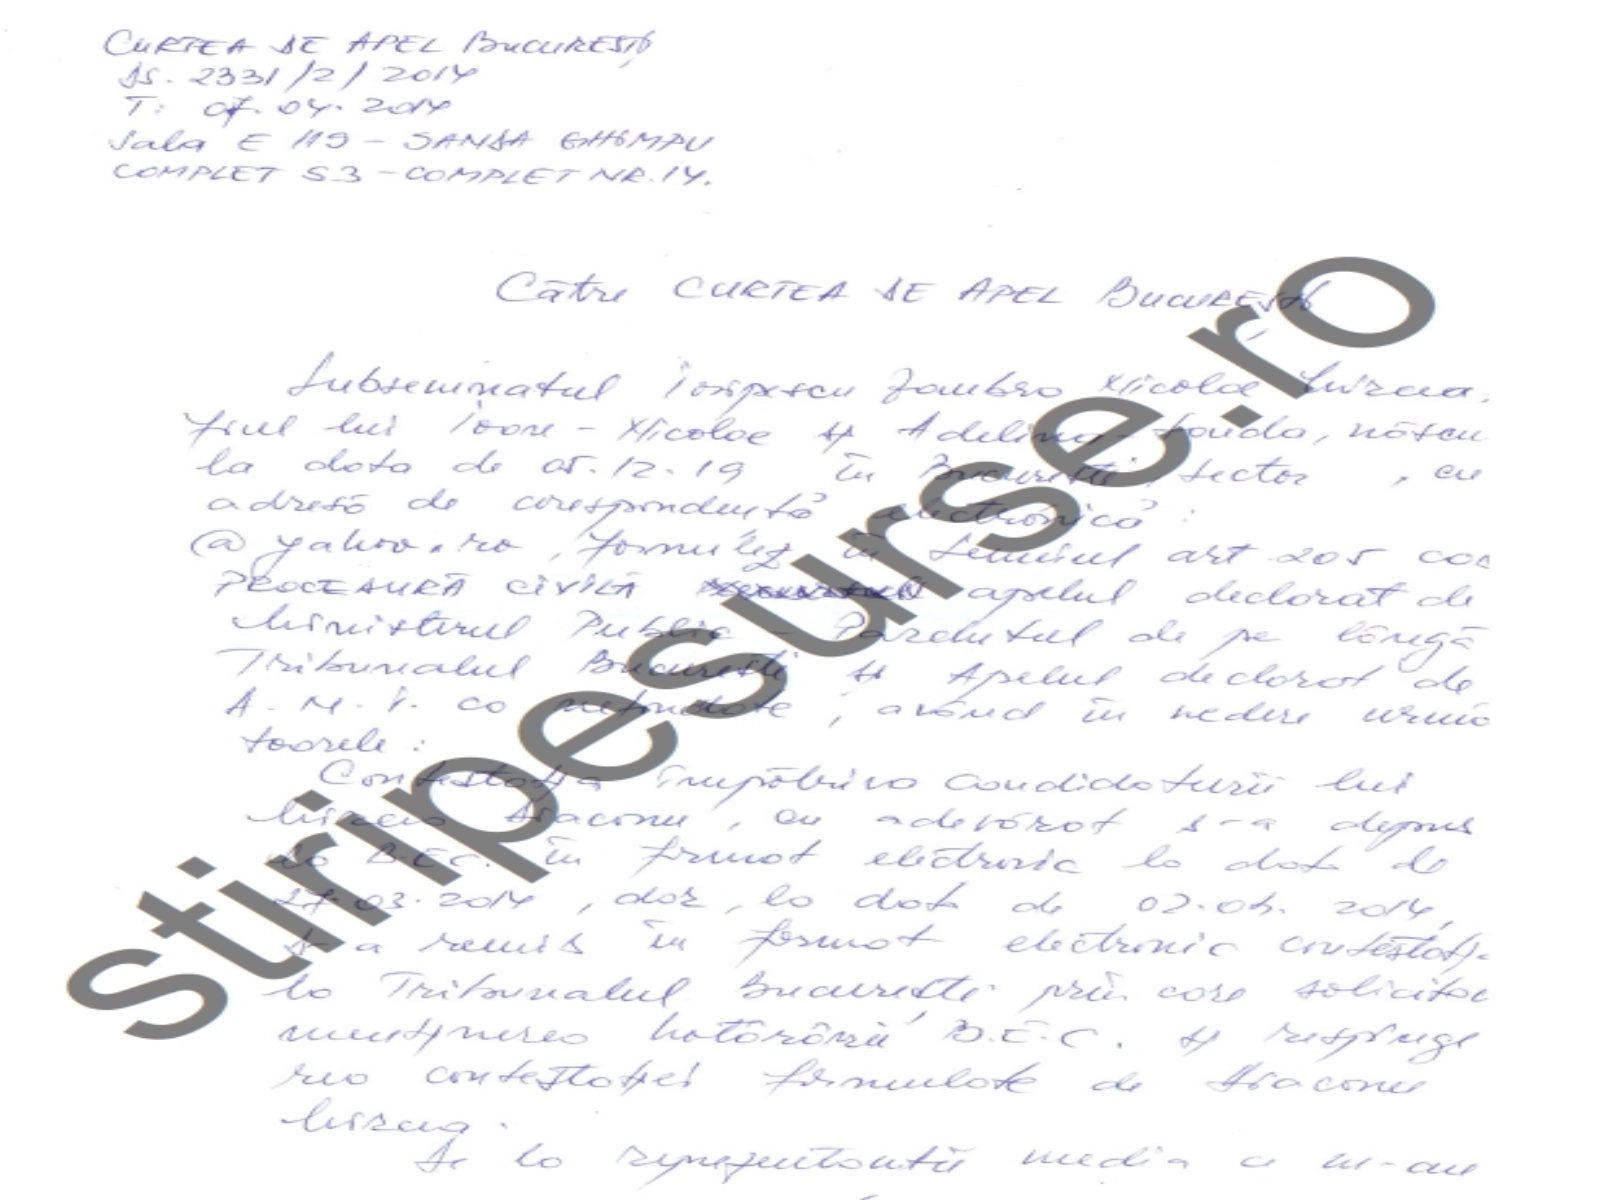 CURTEA DE APEL BUCUREȘTI
DS. 2331/2/2014
T: 07.04.2014
Sala E 119 - SANDA GHIMPU
COMPLET S3 - COMPLET NR. 14.
Către CURTEA DE APEL BUCUREȘTI
Subsemnatul Nicolae Mircea,
fiul lui Ioan - Nicolae și Adelina - , născu
la data de 05.12.19 în București, sector , cu
adresă de corespondență electronică :
@yahoo.ro , formulez în temeiul art 205 cod
PROCEDURĂ CIVILĂ apelul declarat de
Ministerul Public - Parchetul de pe lângă
Tribunalul București și Apelul declarat de
A.N.I. ca , având în vedere urmă
toarele :
Contestația împotriva candidaturii lui
Mircea Diaconu, cu adevărat s-a depus
la B.E.C. în format electronic la data de
27.03.2014 , dar, la data de 02.04.2014,
s-a remis în format electronic contestați
la Tribunalul București prin care solicitam
menținerea hotărârii B.E.C. și respinge
rea contestației formulate de Diaconu
Mircea.
De la reprezentanții media ce m-au
stiripesurse.ro